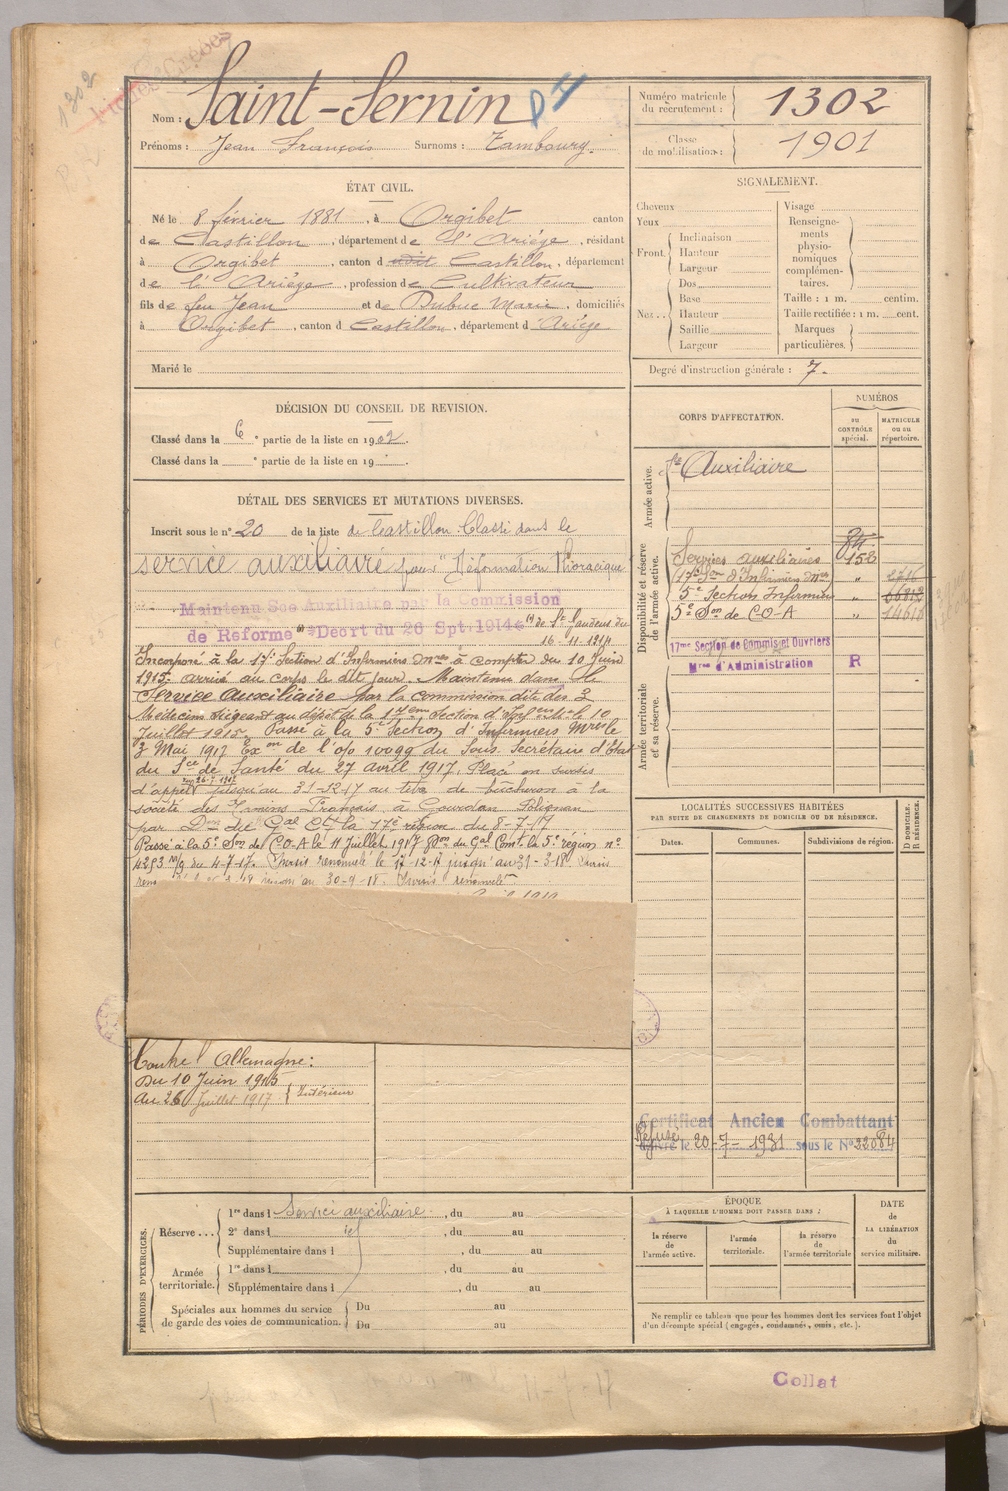 1302
Nom : Saint-Sernin
Prénoms : Jean François Surnoms : Tamboury.
Numéro matricule du recrutement : 1302
Classe de mobilisation : 1901
ÉTAT CIVIL.
Né le 8 février 1881, à Orgibet canton
de Castillon, département de l'Ariège, résidant
à Orgibet, canton d Castillon, département
de l'Ariège, profession de Cultivateur
fils de feu Jean et de Dubuc Marie, domiciliés
à Orgibet, canton d Castillon, département d Ariège
Marié le
SIGNALEMENT.
Cheveux
Yeux
Front. Inclinaison
Hauteur
Largeur
Nez .. Dos
Base
Hauteur
Saillie
Largeur
Visage
Renseignements physionomiques complémentaires.
Taille : 1 m. centim.
Taille rectifiée : 1 m. cent.
Marques particulières.
Degré d'instruction générale : 7.
DÉCISION DU CONSEIL DE REVISION.
Classé dans la 6e partie de la liste en 1902.
Classé dans la e partie de la liste en 19 .
DÉTAIL DES SERVICES ET MUTATIONS DIVERSES.
Inscrit sous le n° 20 de la liste de Castillon Classé dans le
service auxiliaire pour "Déformation Thoracique
Maintenu Sce Auxiliaire par la Commission
de Reforme Décrt du 26 Spt. 1914 de St Gaudens du
16-11-1914
Incorporé à la 17e Section d'Infirmiers Mres à compter du 10 Juin
1915 arrivé au corps le dit jour. Maintenu dans le
Service Auxiliaire par la commission dite des 3
Médecins siégeant au dépôt de la 17eme Section d'Infers Mres le 10
Juillet 1915. Passé à la 5e Section d'Infirmiers Mres le
3 Mai 1917 Exon de l'o/o 10099 du Sous. Secrétaire d'Etat
du Sce de Santé du 27 avril 1917. Placé en sursis
d'appel jusqu'au 31-12-17 au titre de bûcheron à la
société des Tanins Français à Gourdan Polignan
par Don du Gal Ct la 17e région du 8-7-17
Passé à la 5e Son de C-O-A le 11 Juillet 1917 Don du Gal Comt la 5e région n°
4293 m/3 du 4-7-17. Sursis renouvelé le 17-12-17 jusqu'au 31-3-18. Sursis
au 30-9-18. Sursis renouvelé
Contre l'Allemagne :
Du 10 Juin 1915
au 26 Juillet 1917 Intérieur
CORPS D'AFFECTATION.
NUMÉROS
au contrôle spécial.
matricule ou au répertoire.
Armée active.
Sce Auxiliaire
Disponibilité et réserve de l'armée active.
Services auxiliaires 158
17e Son d'Infirmiers Mres "
5e Section Infirmiers "
5e Son de C-O-A "
17me Section de Commis et Ouvriers
Mres d'Administration R
Armée territoriale et sa réserve.
LOCALITÉS SUCCESSIVES HABITÉES
PAR SUITE DE CHANGEMENTS DE DOMICILE OU DE RÉSIDENCE.
Dates. Communes. Subdivisions de région. D DOMICILE. R RÉSIDENCE.
Certificat Ancien Combattant
Refusé le 20-7-1931 sous le N° 22084
PÉRIODES D'EXERCICES.
Réserve ... 1re dans l Service auxiliaire , du au
2e dans l , du au
Supplémentaire dans l , du au
Armée territoriale. 1re dans l , du au
Supplémentaire dans l , du au
Spéciales aux hommes du service de garde des voies de communication. Du au
Du au
ÉPOQUE
À LAQUELLE L'HOMME DOIT PASSER DANS :
la réserve de l'armée active.
l'armée territoriale.
la réserve de l'armée territoriale
DATE de LA LIBÉRATION du service militaire.
Ne remplir ce tableau que pour les hommes dont les services font l'objet
d'un décompte spécial (engagés, condamnés, omis, etc.).
Collat